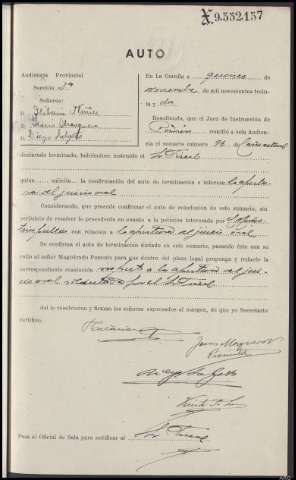 X 9.552.157
AUTO
Audiencia Provincial
Sección 3ª
Señores:
D.
D.
D. Diego Salgado
En La Coruña a quince de
noviembre de mil novecientos trein-
ta y dos
Resultando, que el Juez de Instrucción de
remitió a esta Audien-
cia el sumario número 96 de
declarado terminado, habiéndose instruido el Sr. Fiscal
quien solicita la confirmación del auto de terminación e interesa la apertu-
ra del juicio oral
Considerando, que procede confirmar el auto de conclusión de este sumario, sin
perjuicio de resolver lo procedente en cuanto a la petición interesada por el
con relación a la apertura del juicio oral
Se confirma el auto de terminación dictado en este sumario, pasando éste con su
rollo al señor Magistrado Ponente para que dentro del plazo legal proponga y redacte la
correspondiente resolución respecto a la apertura del jui-
cio oral solicitada por el Sr. Fiscal
Así lo resolvieron y firman los señores expresados al margen, de que yo Secretario
certifico.
Pasa al Oficial de Sala para notificar al Sr. Fiscal